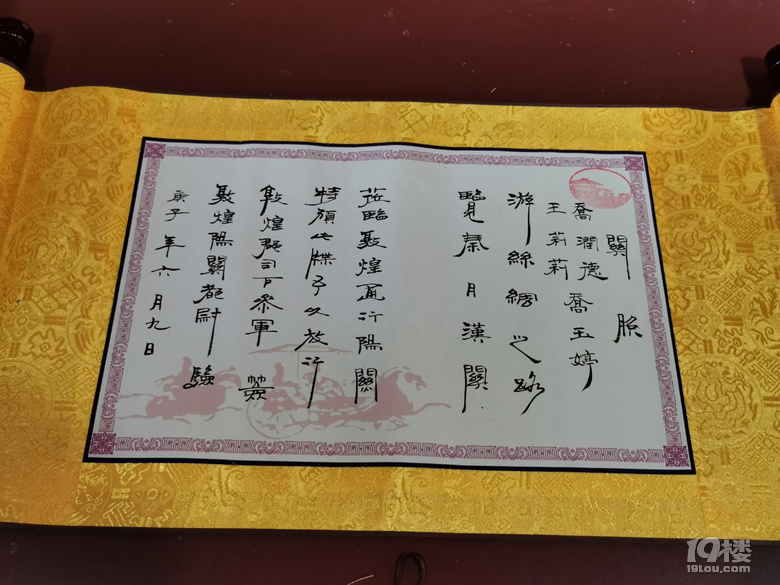 關照
喬潤德 喬玉婷
王莉莉
游絲綢之路
覽秦月漢關
蒞臨敦煌通行陽關
特頒此牒予以放行
敦煌郡司戶參軍
敦煌陽關都尉 驗
庚子年六月九日
19楼
19lou.com